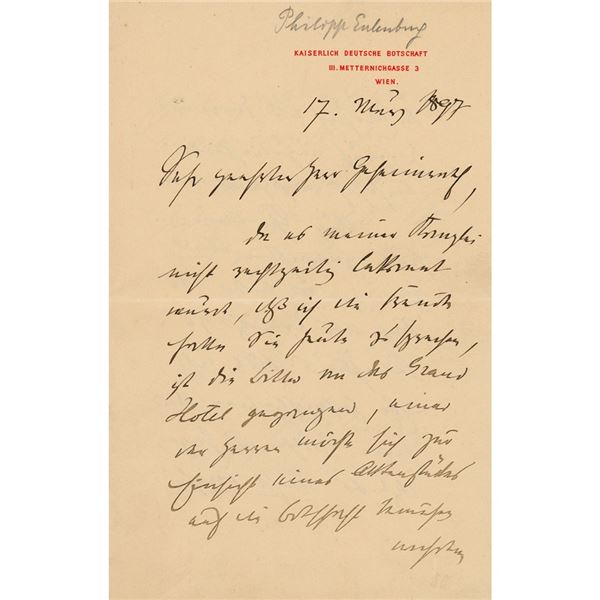 Philipp Eulenburg
KAISERLICH DEUTSCHE BOTSCHAFT
III. METTERNICHGASSE 3
WIEN.
17. März 1897
Sehr geehrter Herr Geheimrath,
da es meiner Kanzlei
nicht rechtzeitig bekannt
wurde, daß ich die Freude
hatte Sie heute zu sprechen,
ist die Bitte an das Grand
Hotel gegangen, einer
der Herren möchte sich zur
Einsicht eines Aktenstückes
auf die Botschaft bemühen